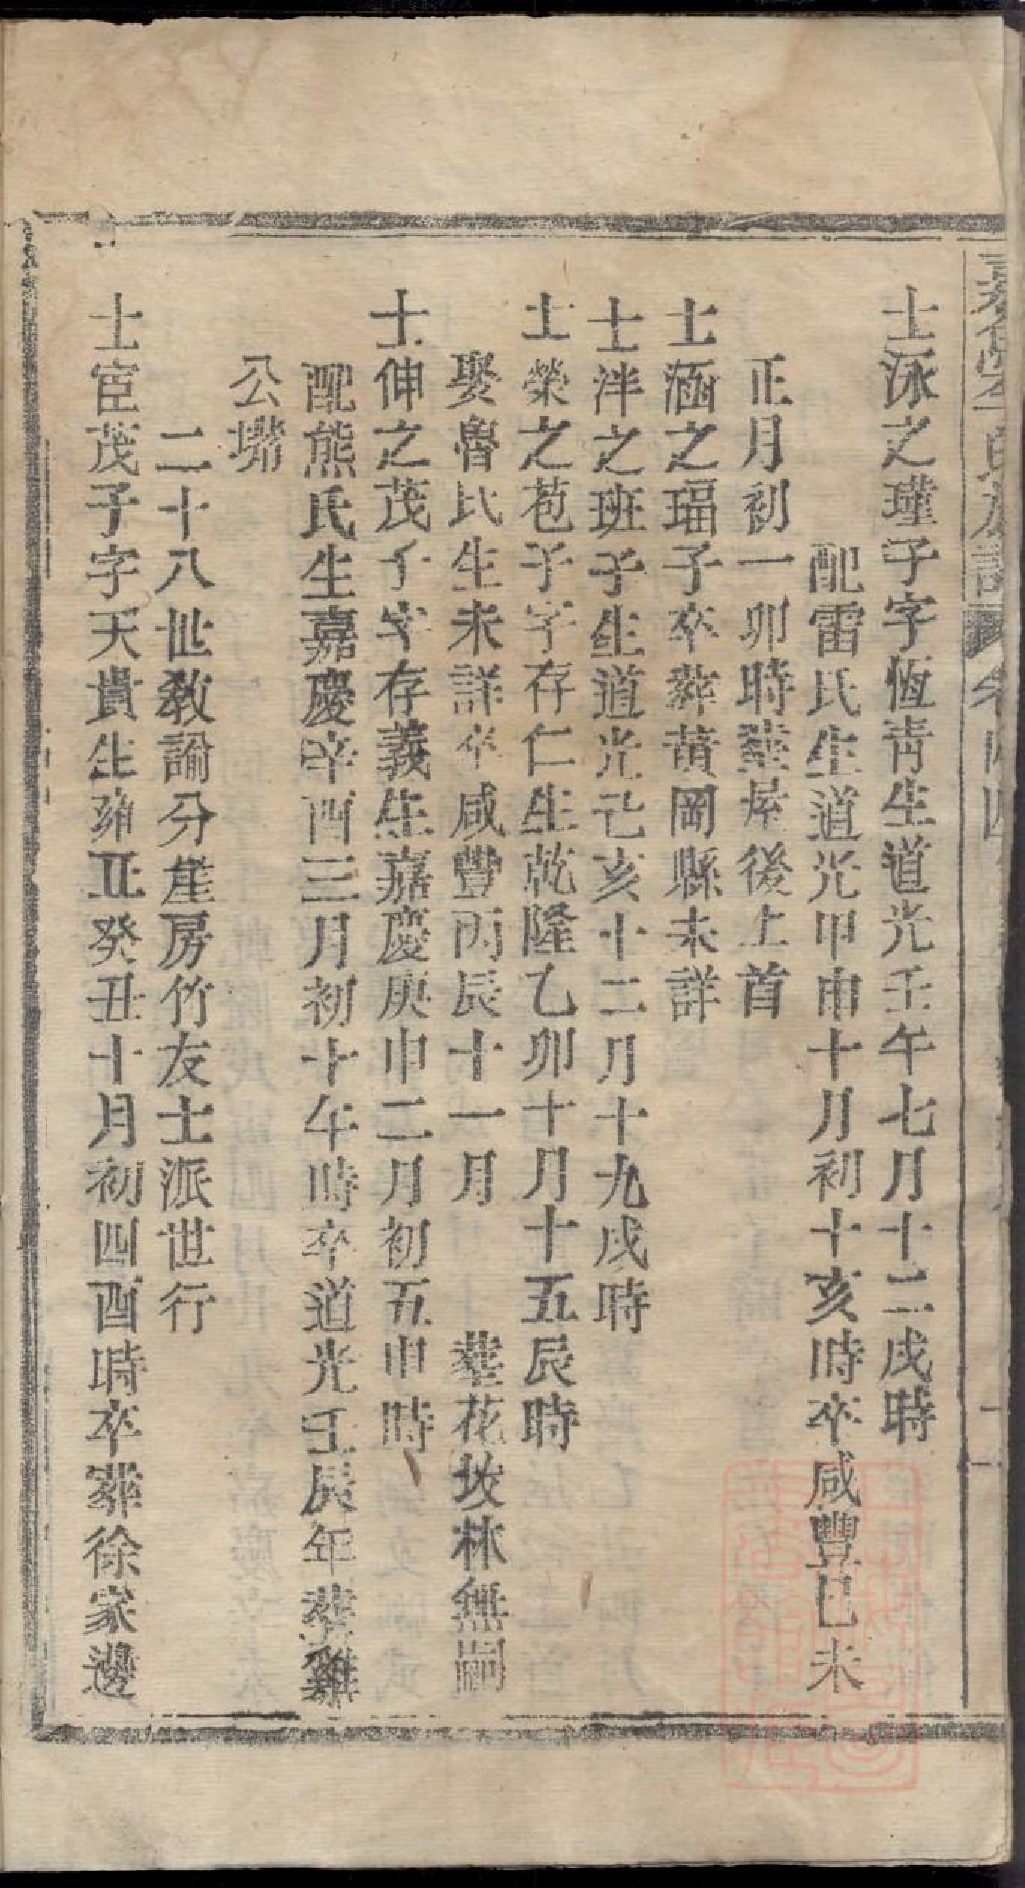 士泳之瑾子字恆青生道光壬午七月十二戌時
配雷氏生道光甲申十月初十亥時卒咸豐己未
正月初一卯時葬屋後上首
士涵之瑙子卒葬黃岡縣未詳
士泮之班子生道光己亥十二月十九戌時
士榮之苞子字存仁生乾隆乙卯十月十五辰時
娶魯氏生未詳卒咸豐丙辰十一月 葬花坟林無嗣
士伸之茂子字存義生嘉慶庚申二月初五申時
配熊氏生嘉慶辛酉三月初十午時卒道光壬辰年葬雞
公嘴
二十八世教諭分崖房竹友士派世行
士宦茂子字天貴生雍正癸丑十月初四酉時卒葬徐家邊